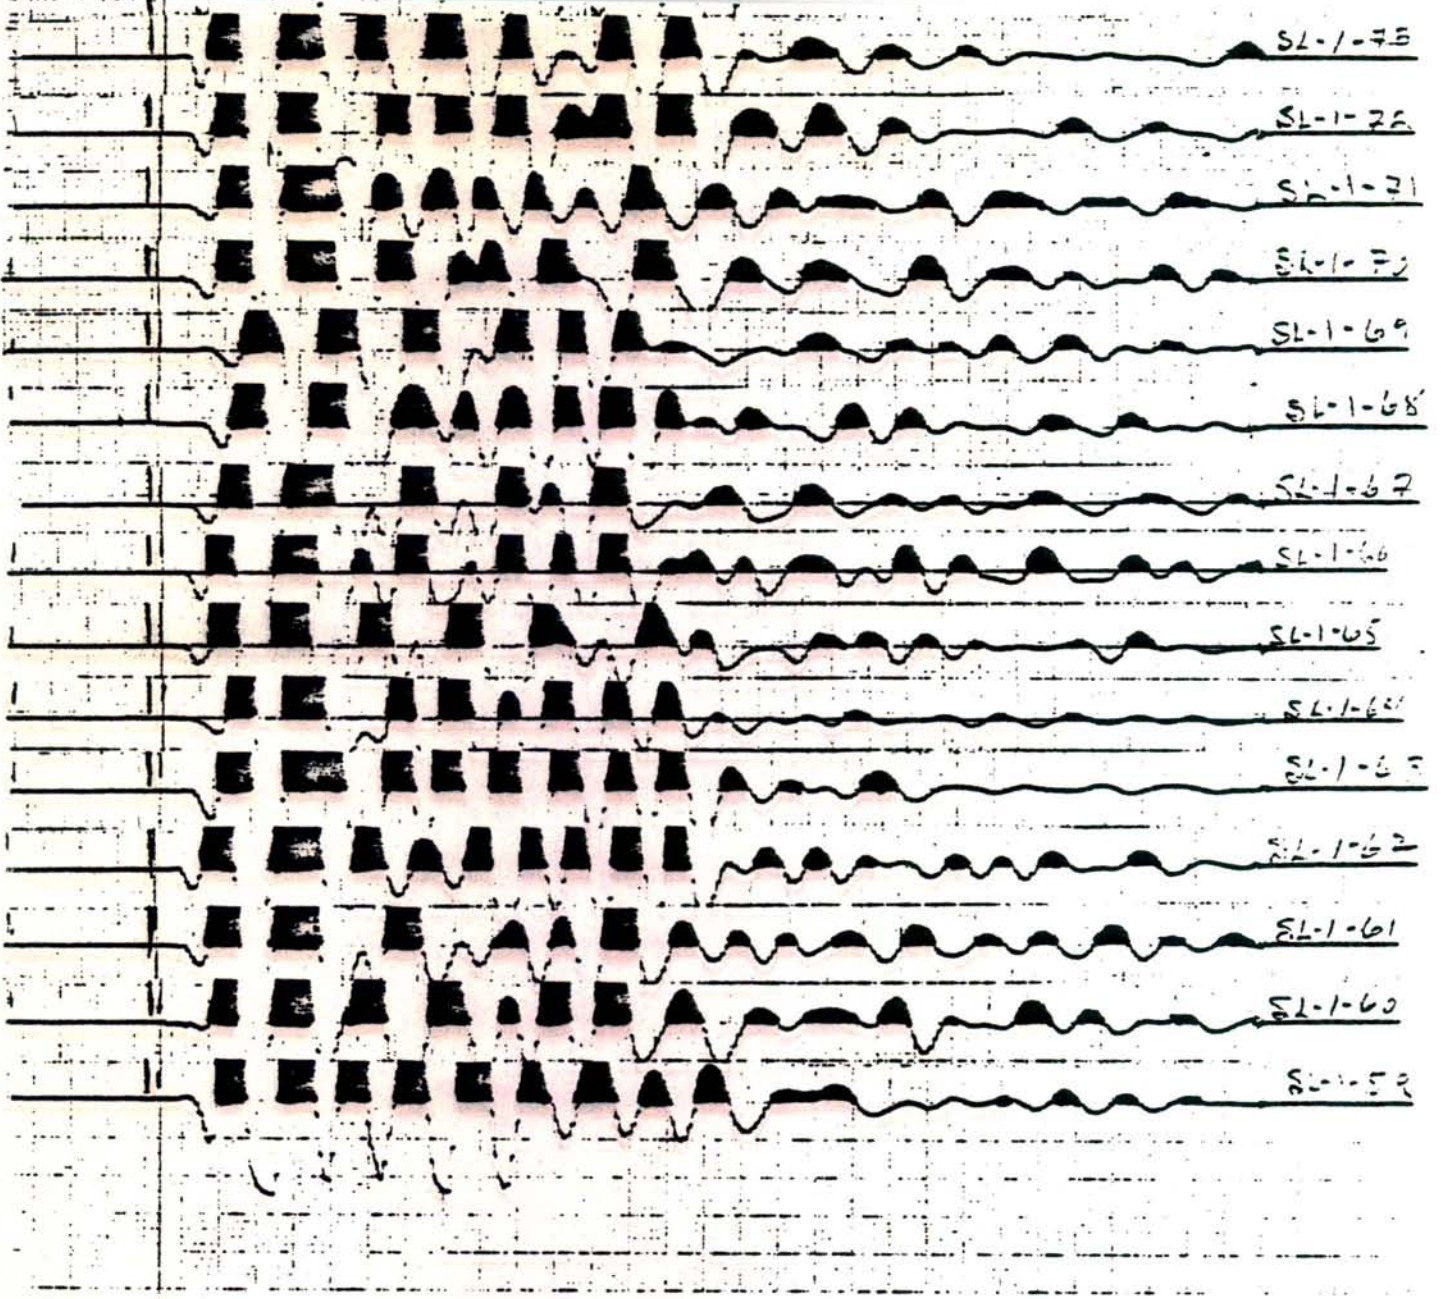 SL-1-73
SL-1-72
SL-1-71
SL-1-70
SL-1-69
SL-1-68
SL-1-67
SL-1-66
SL-1-65
SL-1-64
SL-1-63
SL-1-62
SL-1-61
SL-1-60
SL-1-59